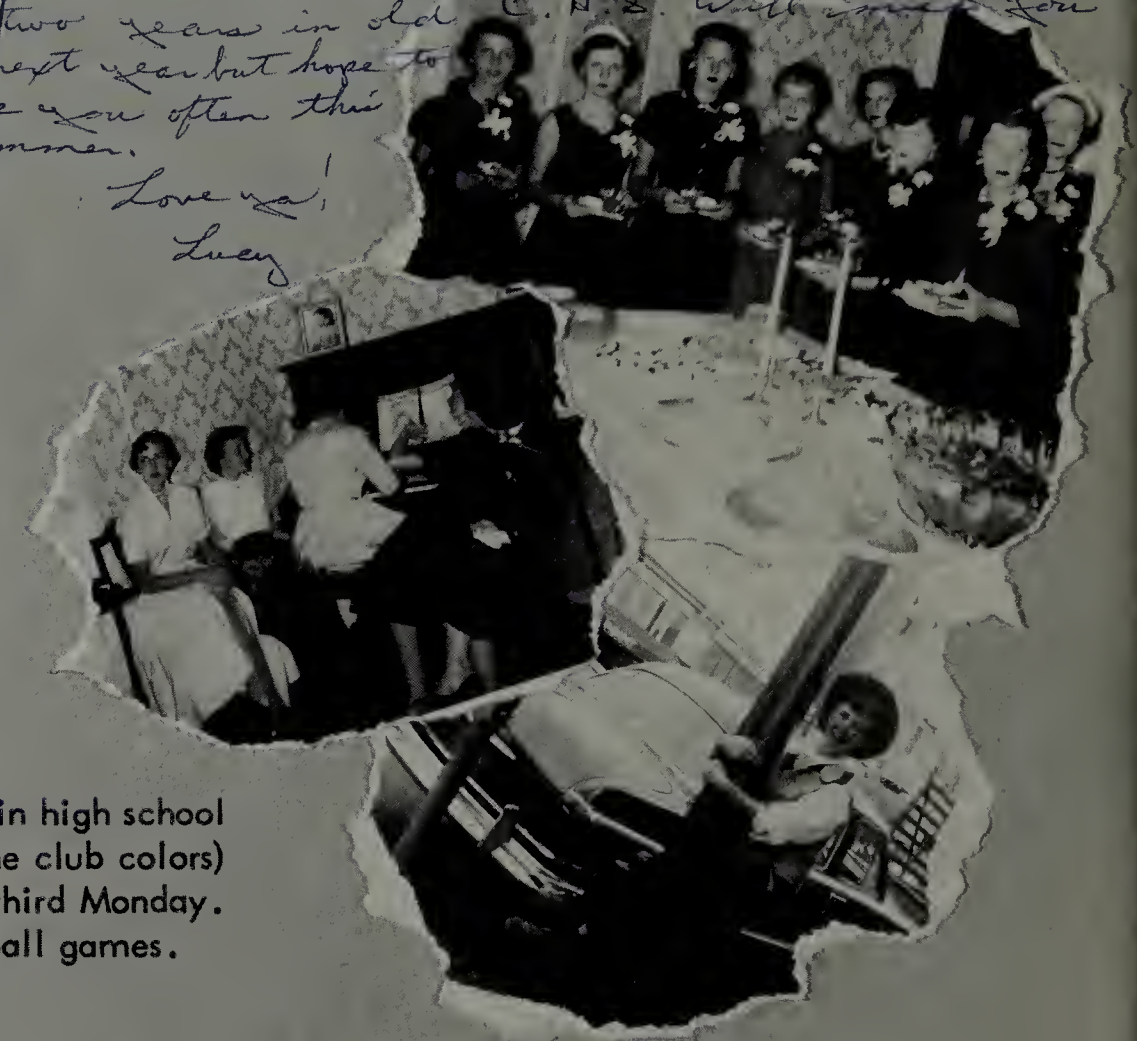 two years in old C. H. S. Will miss you
next year but hope to
you often this
Love ya!
Lucy
in high school
club colors)
third Monday.
all games.